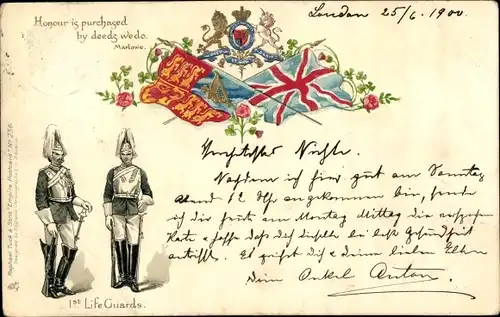 Honour is purchased
by deeds we do.
Marlowe.
London 25/6. 1900
Nichte.
Nachdem ich hier gut am Sonntag
Abend 12 Uhr angekommen bin, sende
ich dir heute am Montag Mittag die
Karte & hoffe dass dich dieselbe bei bester Gesundheit
antrifft. Es grüsst dich & deine lieben Eltern
dein Onkel Anton
1st Life Guards.
Raphael Tuck & Sons "Empire" Postcard No 256